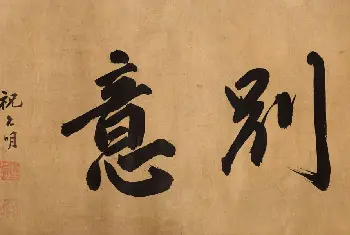 別意
祝允明